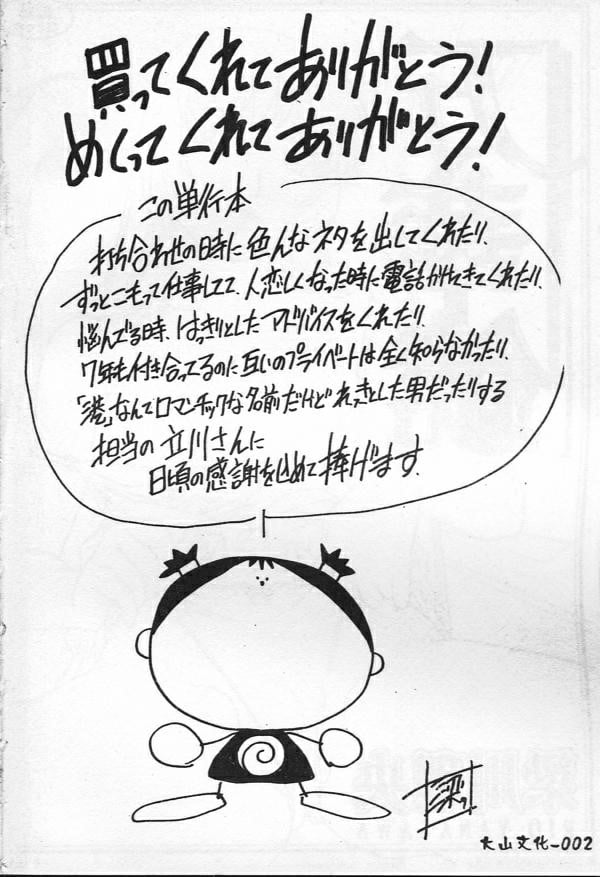 買ってくれてありがとう!
めくってくれてありがとう!
この単行本
打ち合わせの時に色んなネタを出してくれたり、
ずっとこもって仕事してて、人恋しくなった時に電話かけてきてくれたり、
悩んでる時、はっきりとしたアドバイスをくれたり、
7年も付き合ってるのに互いのプライベートは全く知らなかったり、
「渚」なんてロマンチックな名前だけどれっきとした男だったりする
担当の立川さんに
日頃の感謝を込めて捧げます.
大山文化-002